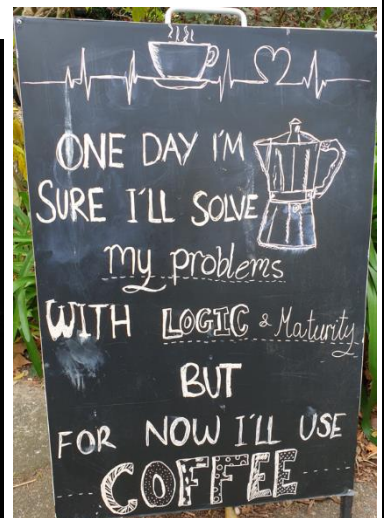 ONE DAY I'M
SURE I'LL SOLVE
my problems
WITH LOGIC & Maturity
BUT
FOR NOW I'LL USE
COFFEE